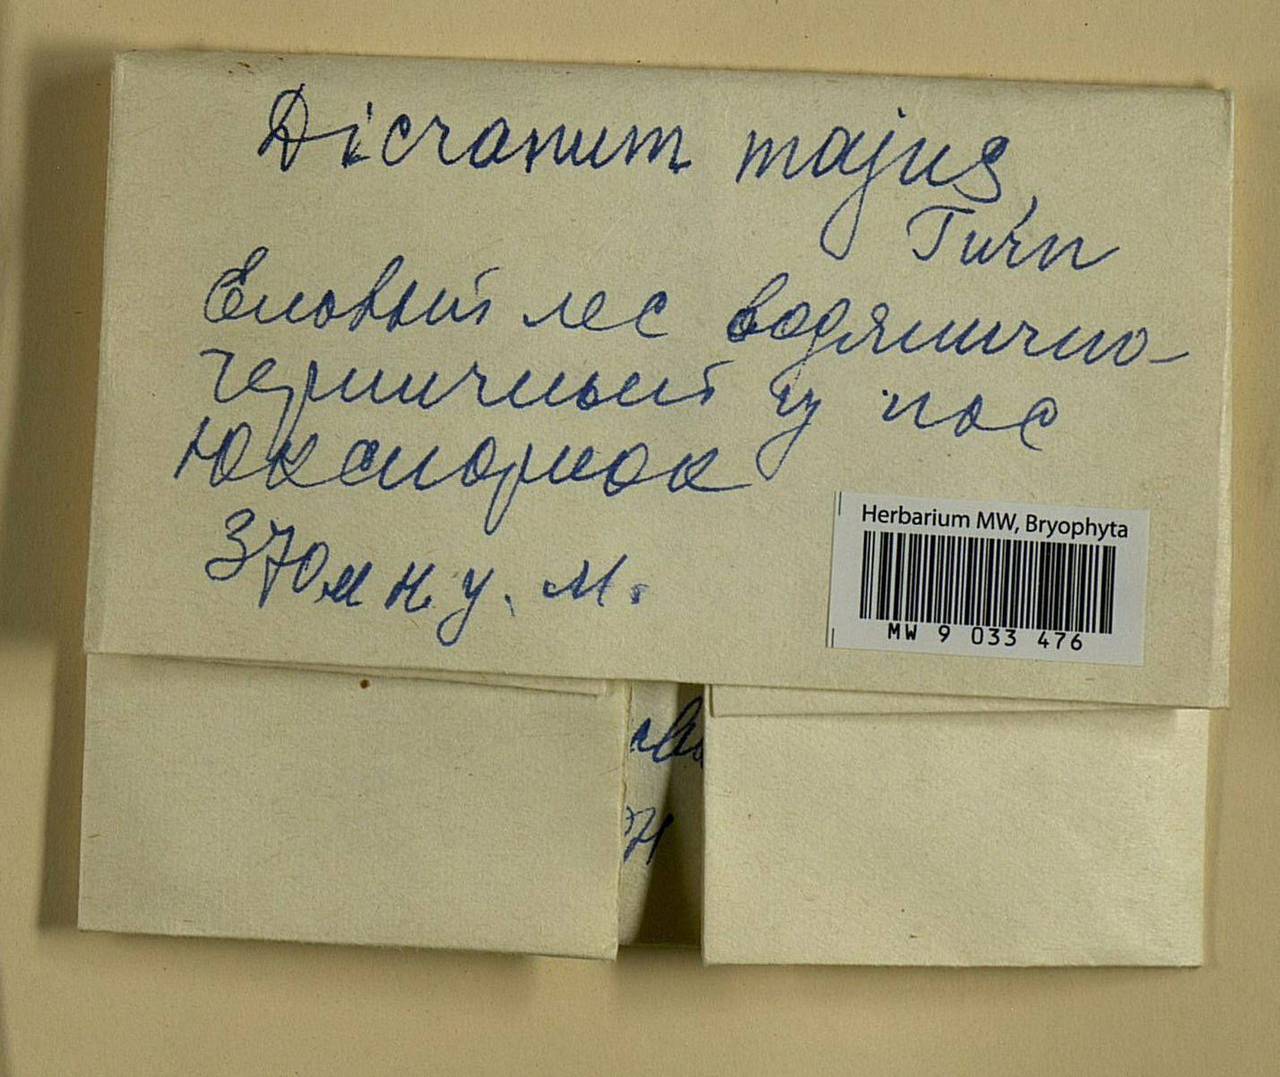 Dicranum majus
Turn
Еловый лес водянично-
черничный у пос
Юкспориок
370 м н. у. м.
Herbarium MW, Bryophyta
MW 9 033 476